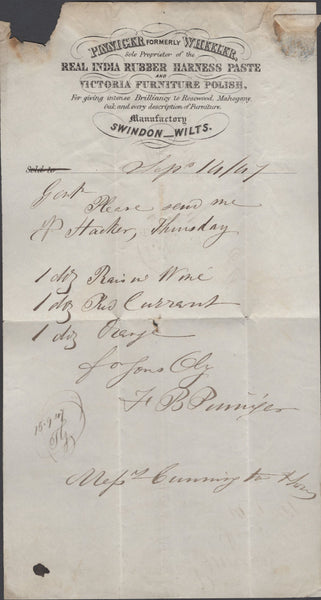 PINNIGER FORMERLY WHEELER,
Sole Proprietor of the
REAL INDIA RUBBER HARNESS PASTE
AND
VICTORIA FURNITURE POLISH,
For giving intense Brilliancy to Rosewood, Mahogany,
Oak, and every description of Furniture.
Manufactory
SWINDON_WILTS.
Sold to
Sep 14/47
Gent
Please send me
P Hacker, Thursday
1 doz Raisin Wine
1 doz Red Currant
1 doz Orange
Yours Oby
F B Pinniger
Messrs Cunnington & Sons